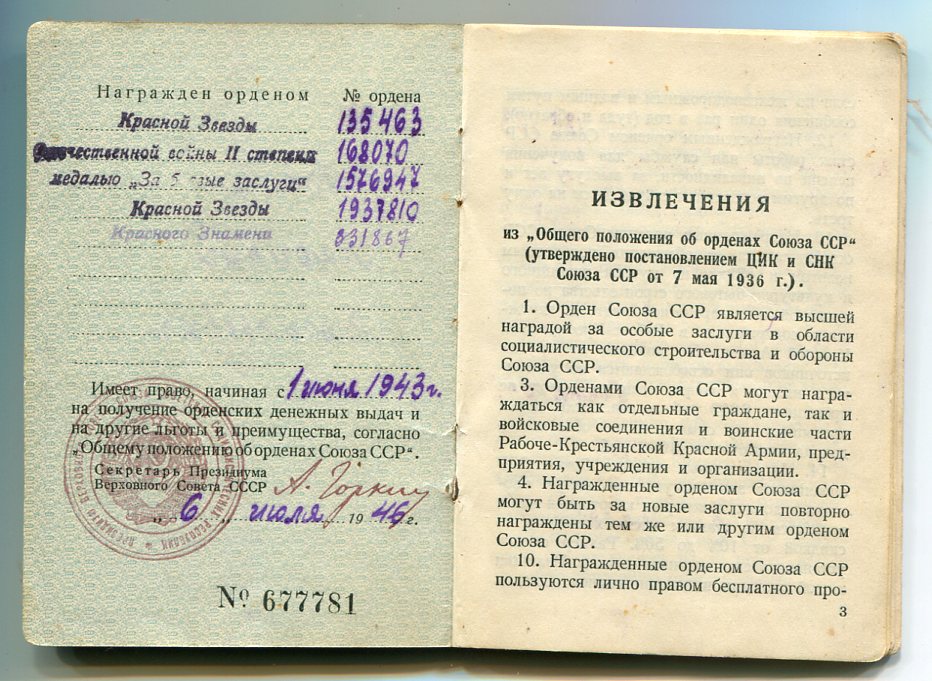 Награжден орденом № ордена
Красной Звезды 135463
Отечественной войны II степени 168070
медалью „За боевые заслуги“ 1576947
Красной Звезды 1937810
Красного Знамени 331867
Имеет право, начиная с 1 июня 1943 г.
на получение орденских денежных выдач и
на другие льготы и преимущества, согласно
„Общему положению об орденах Союза ССР“.
Секретарь Президиума
Верховного Совета СССР А. Горкин
„ 6 „ июля 19 46 г.
№ 677781
ИЗВЛЕЧЕНИЯ
из „Общего положения об орденах Союза ССР“
(утверждено постановлением ЦИК и СНК
Союза ССР от 7 мая 1936 г.).
1. Орден Союза ССР является высшей
наградой за особые заслуги в области
социалистического строительства и обороны
Союза ССР.
3. Орденами Союза ССР могут награ-
ждаться как отдельные граждане, так и
войсковые соединения и воинские части
Рабоче-Крестьянской Красной Армии, пред-
приятия, учреждения и организации.
4. Награжденные орденом Союза ССР
могут быть за новые заслуги повторно
награждены тем же или другим орденом
Союза ССР.
10. Награжденные орденом Союза ССР
пользуются лично правом бесплатного про-
3